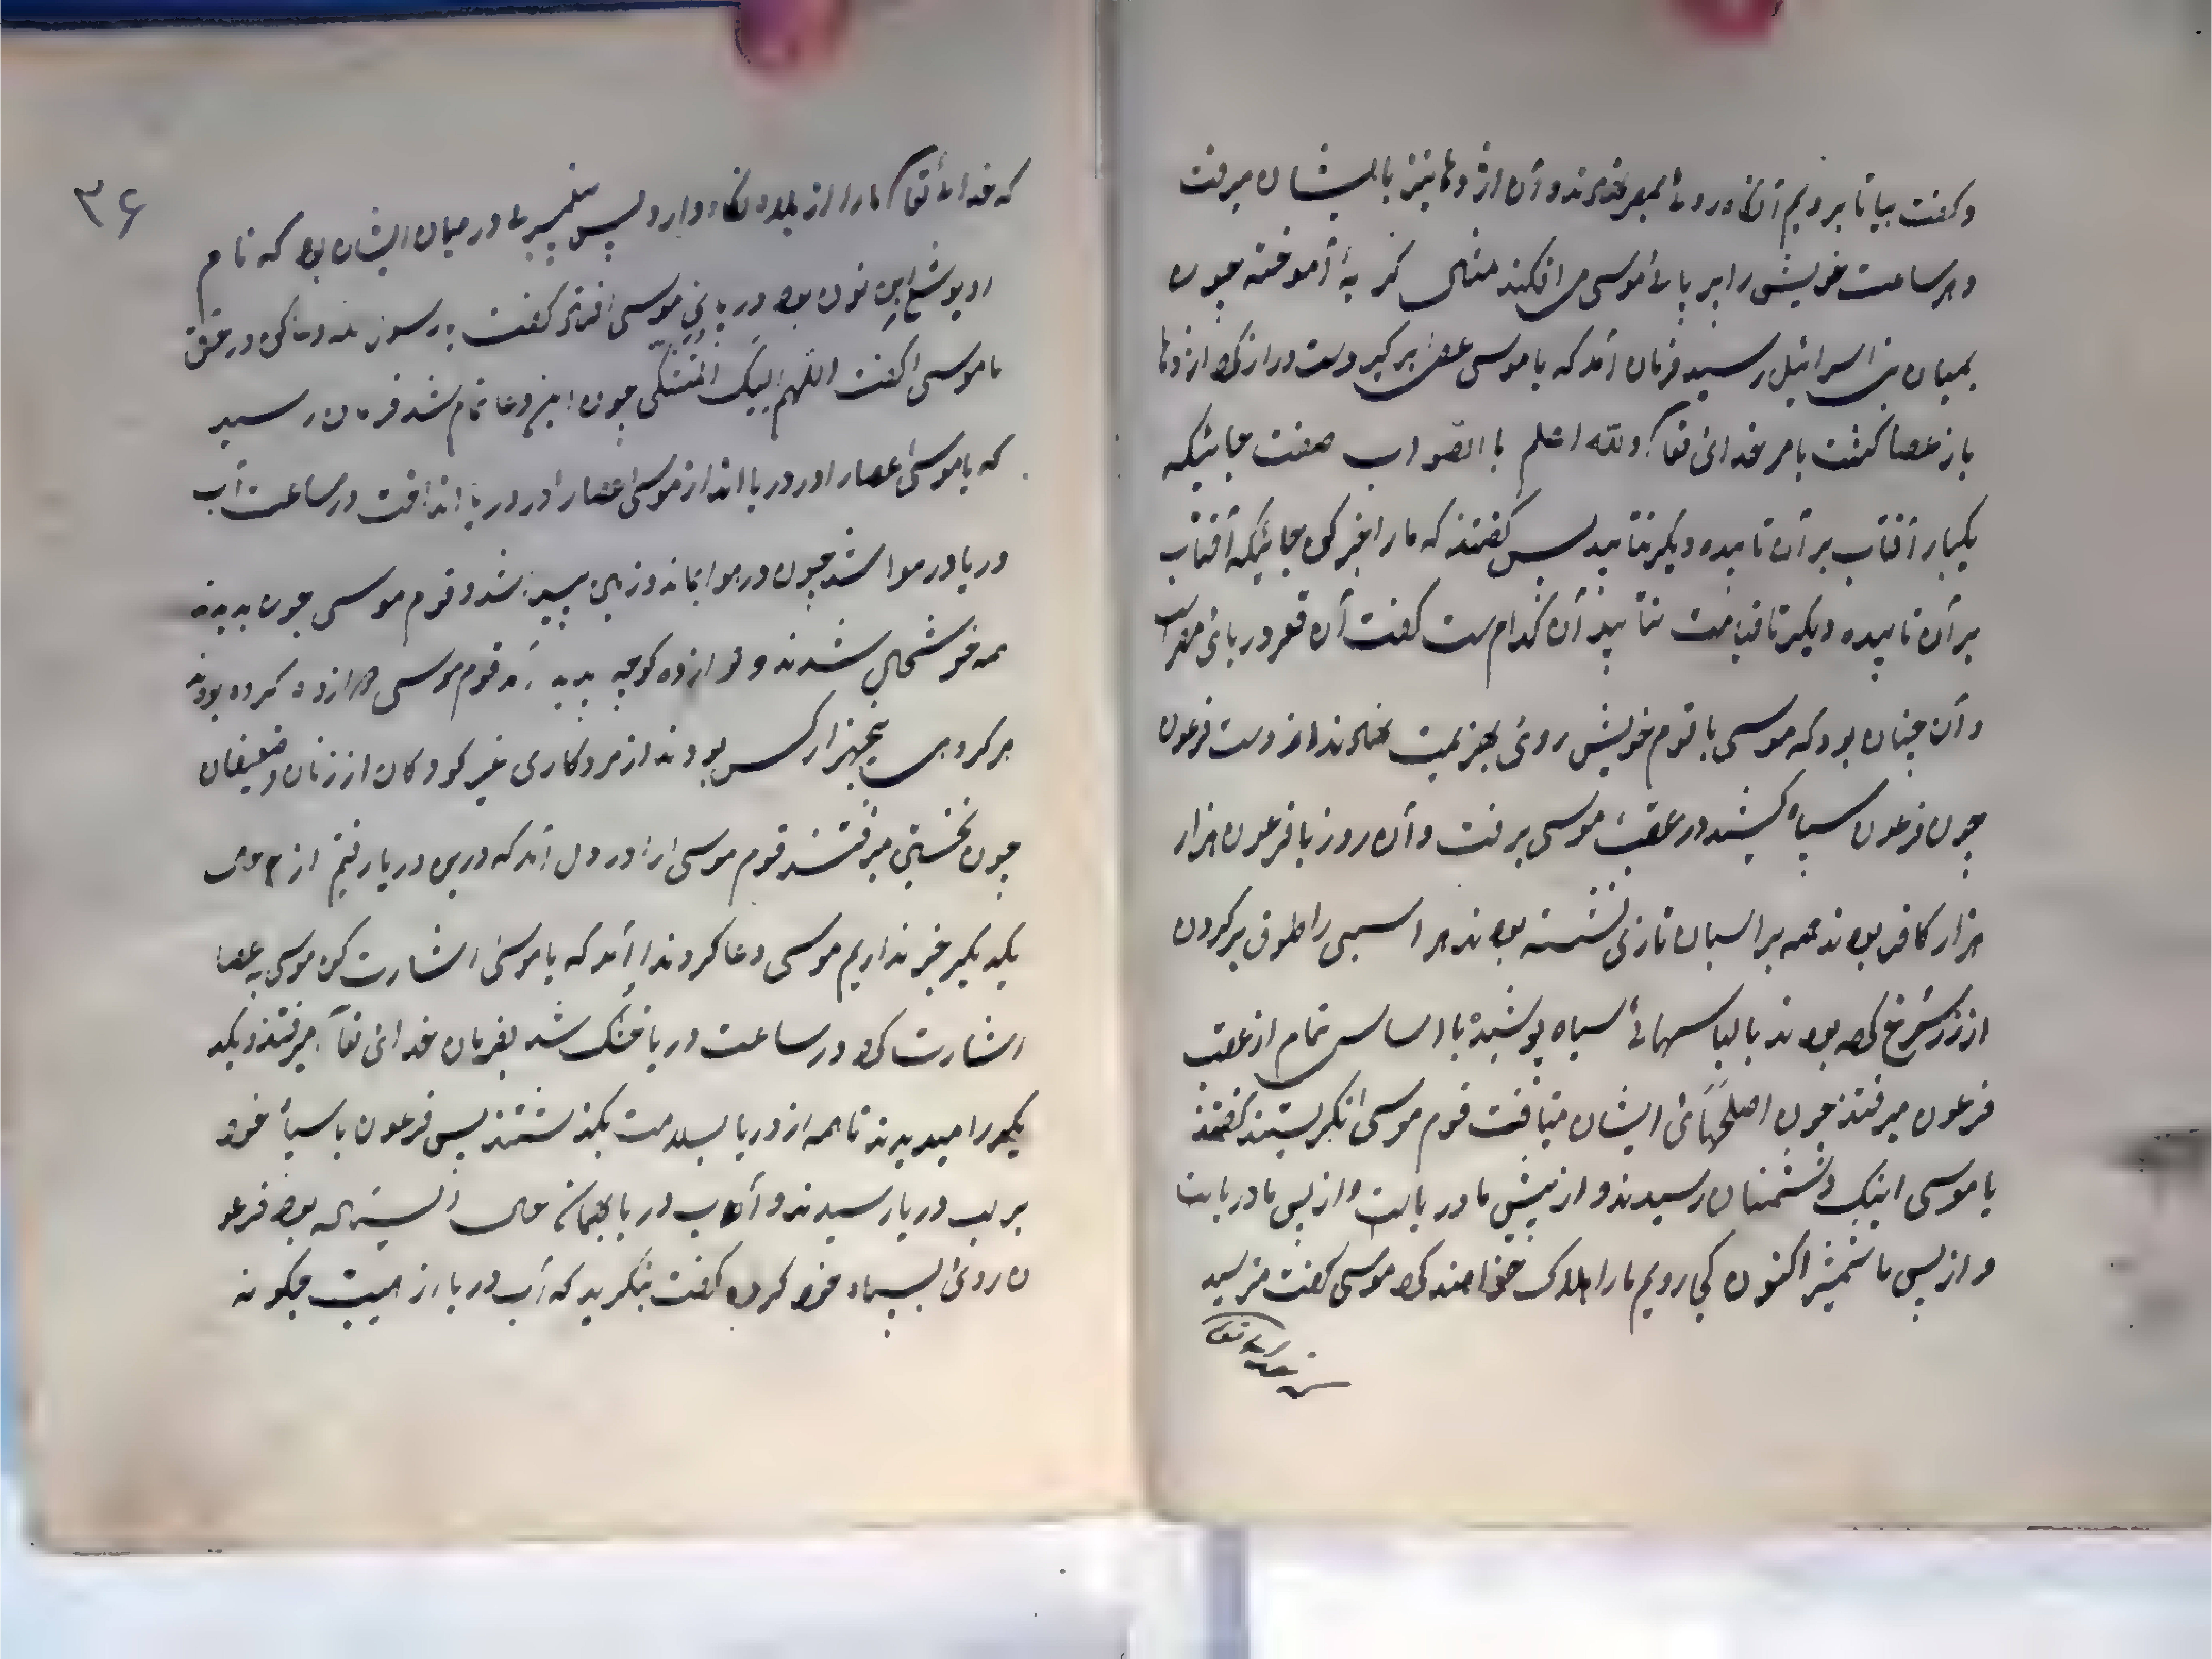 و گفت بیا تا برویم آنگاه روئ بمصر نهادند و آن اژدها نیز با ایشان میرفت
و هر ساعت خویش را بر پائ موسی می افکند مثال گربهٔ آموخته چون
بمیان بنی اسرائیل رسید فرمان آمد که یا موسی عصا برگیر دست دراز کرد اژدها
باز عصا گشت بامر خدائ تعا والله اعلم باالصواب صفت جائیکه
یکبار آفتاب بر آن تابیده دیگر نتابید پس گفتند که ما را خبر کن جائیکه آفتاب
بر آن تابیده و دیگر تا قیامت نتابید آن کدام ست گفت آن قعر دریائ مصر است
و آن چنان بود که موسی با قوم خویش روئ بهزیمت نهادند از دست فرعون
چون فرعون سپاه کشید در عقب موسی برفت و آن روز با فرعون هزار
هزار کافر بودند همه بر اسپان تازی نشسته بودند هر اسپی را طوق بر گردن
از زر سرخ کرده بودند با لباسهائ سیاه پوشیده با اساس تمام از عقب
فرعون میرفتند چون اصلحهائ ایشان میتافت قوم موسی نگریستند گفتند
یا موسی اینک دشمنان رسیدند و از پیش ما دریاست و از پس ما دریاست
و از پس ما شمشیر اکنون کجا رویم ما را هلاک خواهند کرد موسی گفت مترسید
که خدائ تعا ما را از بلا نگاه دارد پس پیغمبرئ در میان ایشان بود که نام
او یوشع ابن نون بود در پائ موسی افتاد گفت یا رسول الله دعا کن در حق
ما موسی گفت اللهم الیک المشتکی چون این دعا تمام شد فرمان رسید
که یا موسی عصا را در دریا انداز موسی عصا را در دریا انداخت در ساعت آب
دریا در هوا شد چون در هوا بماند و زمین پدید شد و قوم موسی چون بدیدند
همه خوشحال شدند و دوازده کوچه پدید آمد قوم موسی دوازده گروه بودند
هر گروهی پنجهزار کس بودند از مرد کاری غیر کودکان از زنان و ضعیفان
چون نخستین میرفتند قوم موسی را در دل آمد که درین دریا رفتیم از حال
یکدیگر خبر نداریم موسی دعا کرد ندا آمد که یا موسی اشارت کن موسی به عصا
اشارت کرد در ساعت دریا خشک شد بفرمان خدائ تعا میرفتند و یکد
یگر را میدیدند تا همه از دریا بسلامت بگذشتند پس فرعون با سپاه خود
بر لب دریا رسیدند و آب دریا بهمان حال ایستاده بود فرعو
ن روئ بسپاه خود کرده گفت بنگرید که آب دریا از هیبت چگونه
۳۶